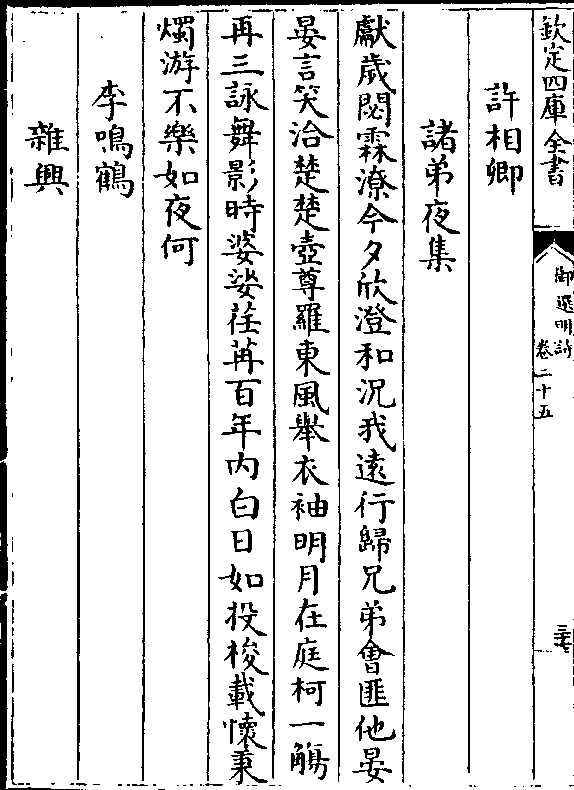 欽定四庫全書
御選明詩
卷二十五
三七
許相卿
諸弟夜集
獻歲閟霖潦今夕欣澄和況我遠行歸兄弟會匪他晏
晏言笑洽楚楚壺尊羅東風舉衣袖明月在庭柯一觴
再三詠舞影時婆娑荏苒百年内白日如投梭載懷秉
燭游不樂如夜何
李鳴鶴
雜興